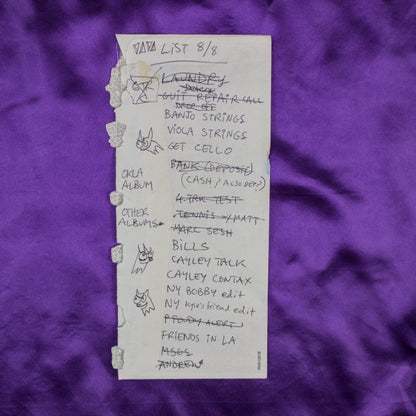 LIST 8/8
LAUNDRY
GUIT REPAIR CALL
DROP OFF
BANJO STRINGS
VIOLA STRINGS
GET CELLO
BANK (DEPOSIT)
(CASH, ALSO DEP?)
OKLA
ALBUM
4. TRK TEST
OTHER
ALBUMS
TENNIS w/ MATT
MARC SESH
BILLS
CAYLEY TALK
CAYLEY CONTAX
NY BOBBY edit
NY kyle's friend edit
ALERT
FRIENDS IN LA
MSGS
ANDREW